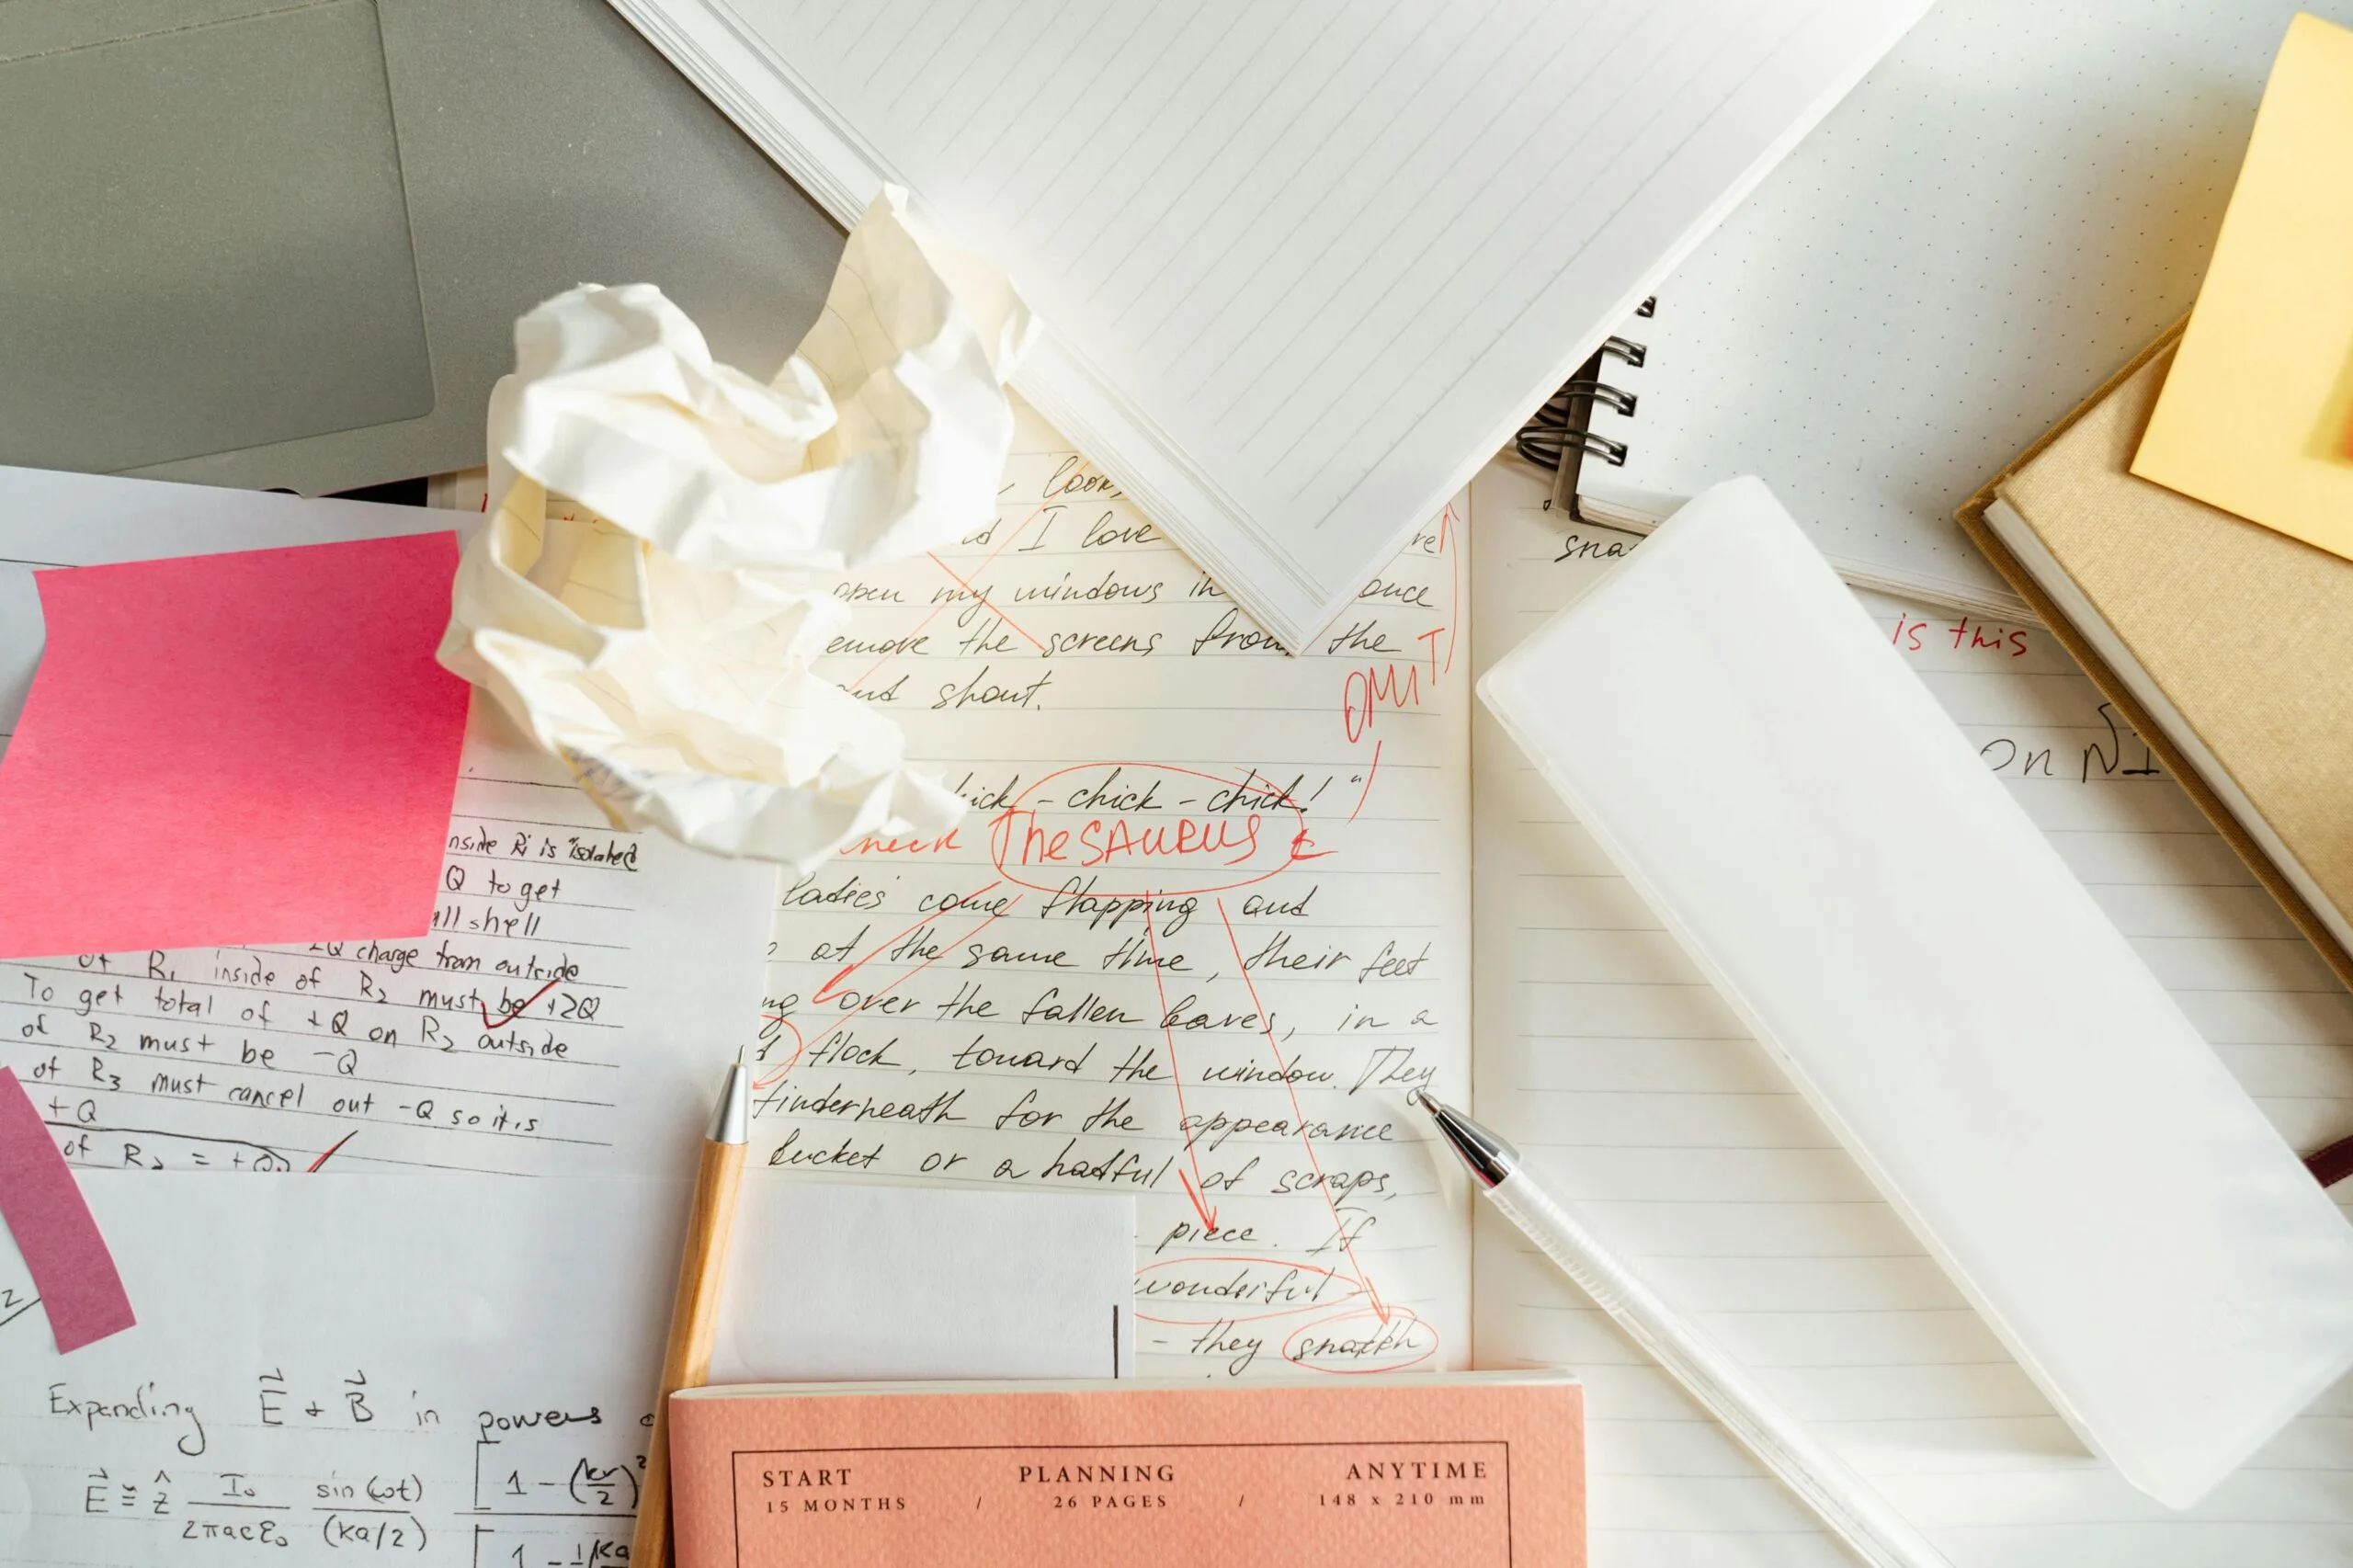 look,
I love
open my windows in
once
the screens from the
and shout.
OMIT
- chick - chick! "
TheSAURUS
ladies come flapping and
at the same time, their feet
over the fallen leaves, in a
flock, toward the window. They
for the appearance
bucket or a hatful of scraps,
piece. If
wonderful
- they snatch
is this
on
R1 is "isolated
Q to get
shell
2Q charge from outside
of R1 inside of R2 must be +2Q
To get total of +Q on R2 outside
of R2 must be -Q
of R3 must cancel out -Q so it is
+Q
of
2
Expanding E⃗ + B⃗ in powers
E⃗ ≅ ẑ I₀/2πacε₀ sin(ωt)/(ka/2) [1 - (kr/2)²
[1 -
START PLANNING ANYTIME
15 MONTHS / 26 PAGES / 148 x 210 mm